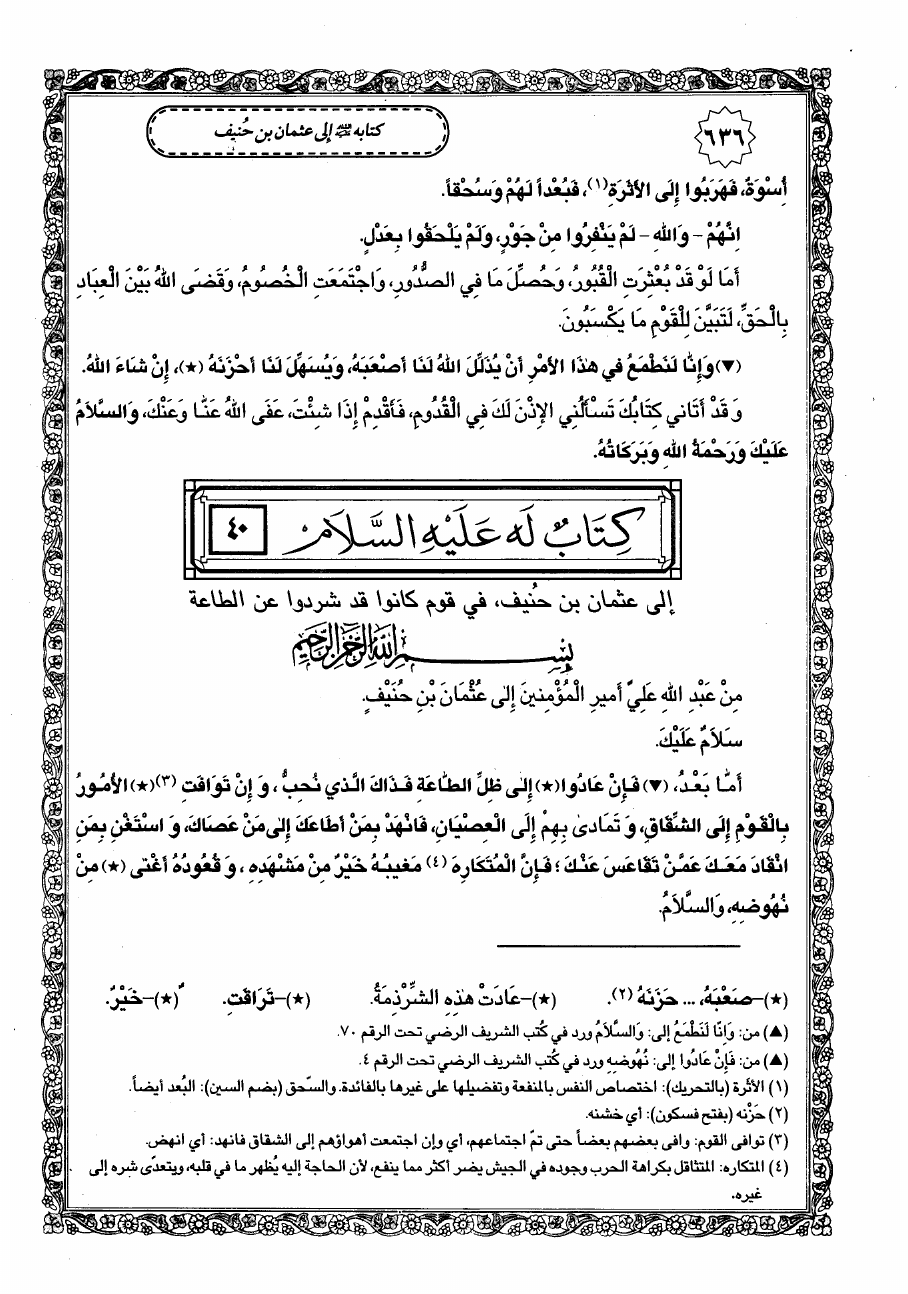 ٦٣٦
كتابه ﷺ إلى عثمان بن حُنيف
أُسْوَةٌ، فَهَرَبُوا إِلَى الأَثَرَةِ(١)، فَبُعْداً لَهُمْ وَسُحْقاً.
إِنَّهُمْ - وَاللهِ - لَمْ يَنْفِرُوا مِنْ جَوْرٍ، وَلَمْ يَلْحَقُوا بِعَدْلٍ.
أَمَا لَوْ قَدْ بُعْثِرَتِ الْقُبُورُ، وَحُصِّلَ مَا فِي الصُّدُورِ، وَاجْتَمَعَتِ الْخُصُومُ، وَقَضَى اللهُ بَيْنَ الْعِبَادِ
بِالْحَقِّ، لَتَبَيَّنَ لِلْقَوْمِ مَا يَكْسَبُونَ.
(▼) وَإِنَّا لَنَطْمَعُ في هٰذَا الأَمْرِ أَنْ يُذَلِّلَ اللهُ لَنَا أَصْعَبَهُ، وَيُسَهِّلَ لَنَا أَحْزَنَهُ (★)، إِنْ شَاءَ اللهُ.
وَ قَدْ أَتَاني كِتَابُكَ تَسْأَلُنِي الإِذْنَ لَكَ فِي الْقُدُومِ، فَأَقْدِمْ إِذَا شِئْتَ، عَفَى اللهُ عَنَّا وَعَنْكَ، وَالسَّلاَمُ
عَلَيْكَ وَرَحْمَةُ اللهِ وَبَرَكَاتُهُ.
كِتَابٌ لَه عَلَيْهِ السَّلَام
٤٠
إلى عثمان بن حُنيف، في قوم كانوا قد شردوا عن الطاعة
بسم الله الرحمن الرحيم
مِنْ عَبْدِ اللهِ عَلِيٍّ أَميرِ الْمُؤْمِنينَ إِلىٰ عُثْمَانَ بْنِ حُنَيْفٍ.
سَلاَمٌ عَلَيْكَ.
أَمَّا بَعْدُ، (▼) فَإِنْ عَادُوا(★) إِلىٰ ظِلِّ الطَّاعَةِ فَذَاكَ الَّذي نُحِبُّ، وَ إِنْ تَوَافَتِ (٣)(★) الأُمُورُ
بِالْقَوْمِ إِلَى الشِّقَاقِ، وَ تَمَادىٰ بِهِمْ إِلَى الْعِصْيَانِ، فَانْهَدْ بِمَنْ أَطَاعَكَ إِلىٰ مَنْ عَصَاكَ، وَ اسْتَغْنِ بِمَنِ
انْقَادَ مَعَكَ عَمَّنْ تَقَاعَسَ عَنْكَ؛ فَإِنَّ الْمُتَكَارِهَ (٤) مَغيبُهُ خَيْرٌ مِنْ مَشْهَدِهِ، وَ قُعُودُهُ أَغْنى (★) مِنْ
نُهُوضِهِ، وَالسَّلاَمُ.
(★)-صَعْبَهُ، ... حَزْنَهُ (٢). (★)-عَادَتْ هٰذِهِ الشِّرْذِمَةُ. (★)-تَرَاقَتِ. (★)-خَيْرٌ.
(▲) من: وَإِنَّا لَنَطْمَعُ إلى: وَالسَّلاَمُ ورد في كُتب الشريف الرضي تحت الرقم ٧٠.
(▲) من: فَإِنْ عَادُوا إلى: نُهُوضِهِ ورد في كُتب الشريف الرضي تحت الرقم ٤.
(١) الأثَرة (بالتحريك): اختصاص النفس بالمنفعة وتفضيلها على غيرها بالفائدة. والسّحق (بضم السين): البُعد أيضاً.
(٢) حَزْنه (بفتح فسكون): أي خشنه.
(٣) توافى القوم: وافى بعضهم بعضاً حتى تمّ اجتماعهم، أي وإن اجتمعت أهواؤهم إلى الشقاق فانهد: أي انهض.
(٤) المتكاره: المتثاقل بكراهة الحرب وجوده في الجيش يضر أكثر مما ينفع، لأن الحاجة إليه يُظهر ما في قلبه، ويتعدّى شره إلى
غيره.